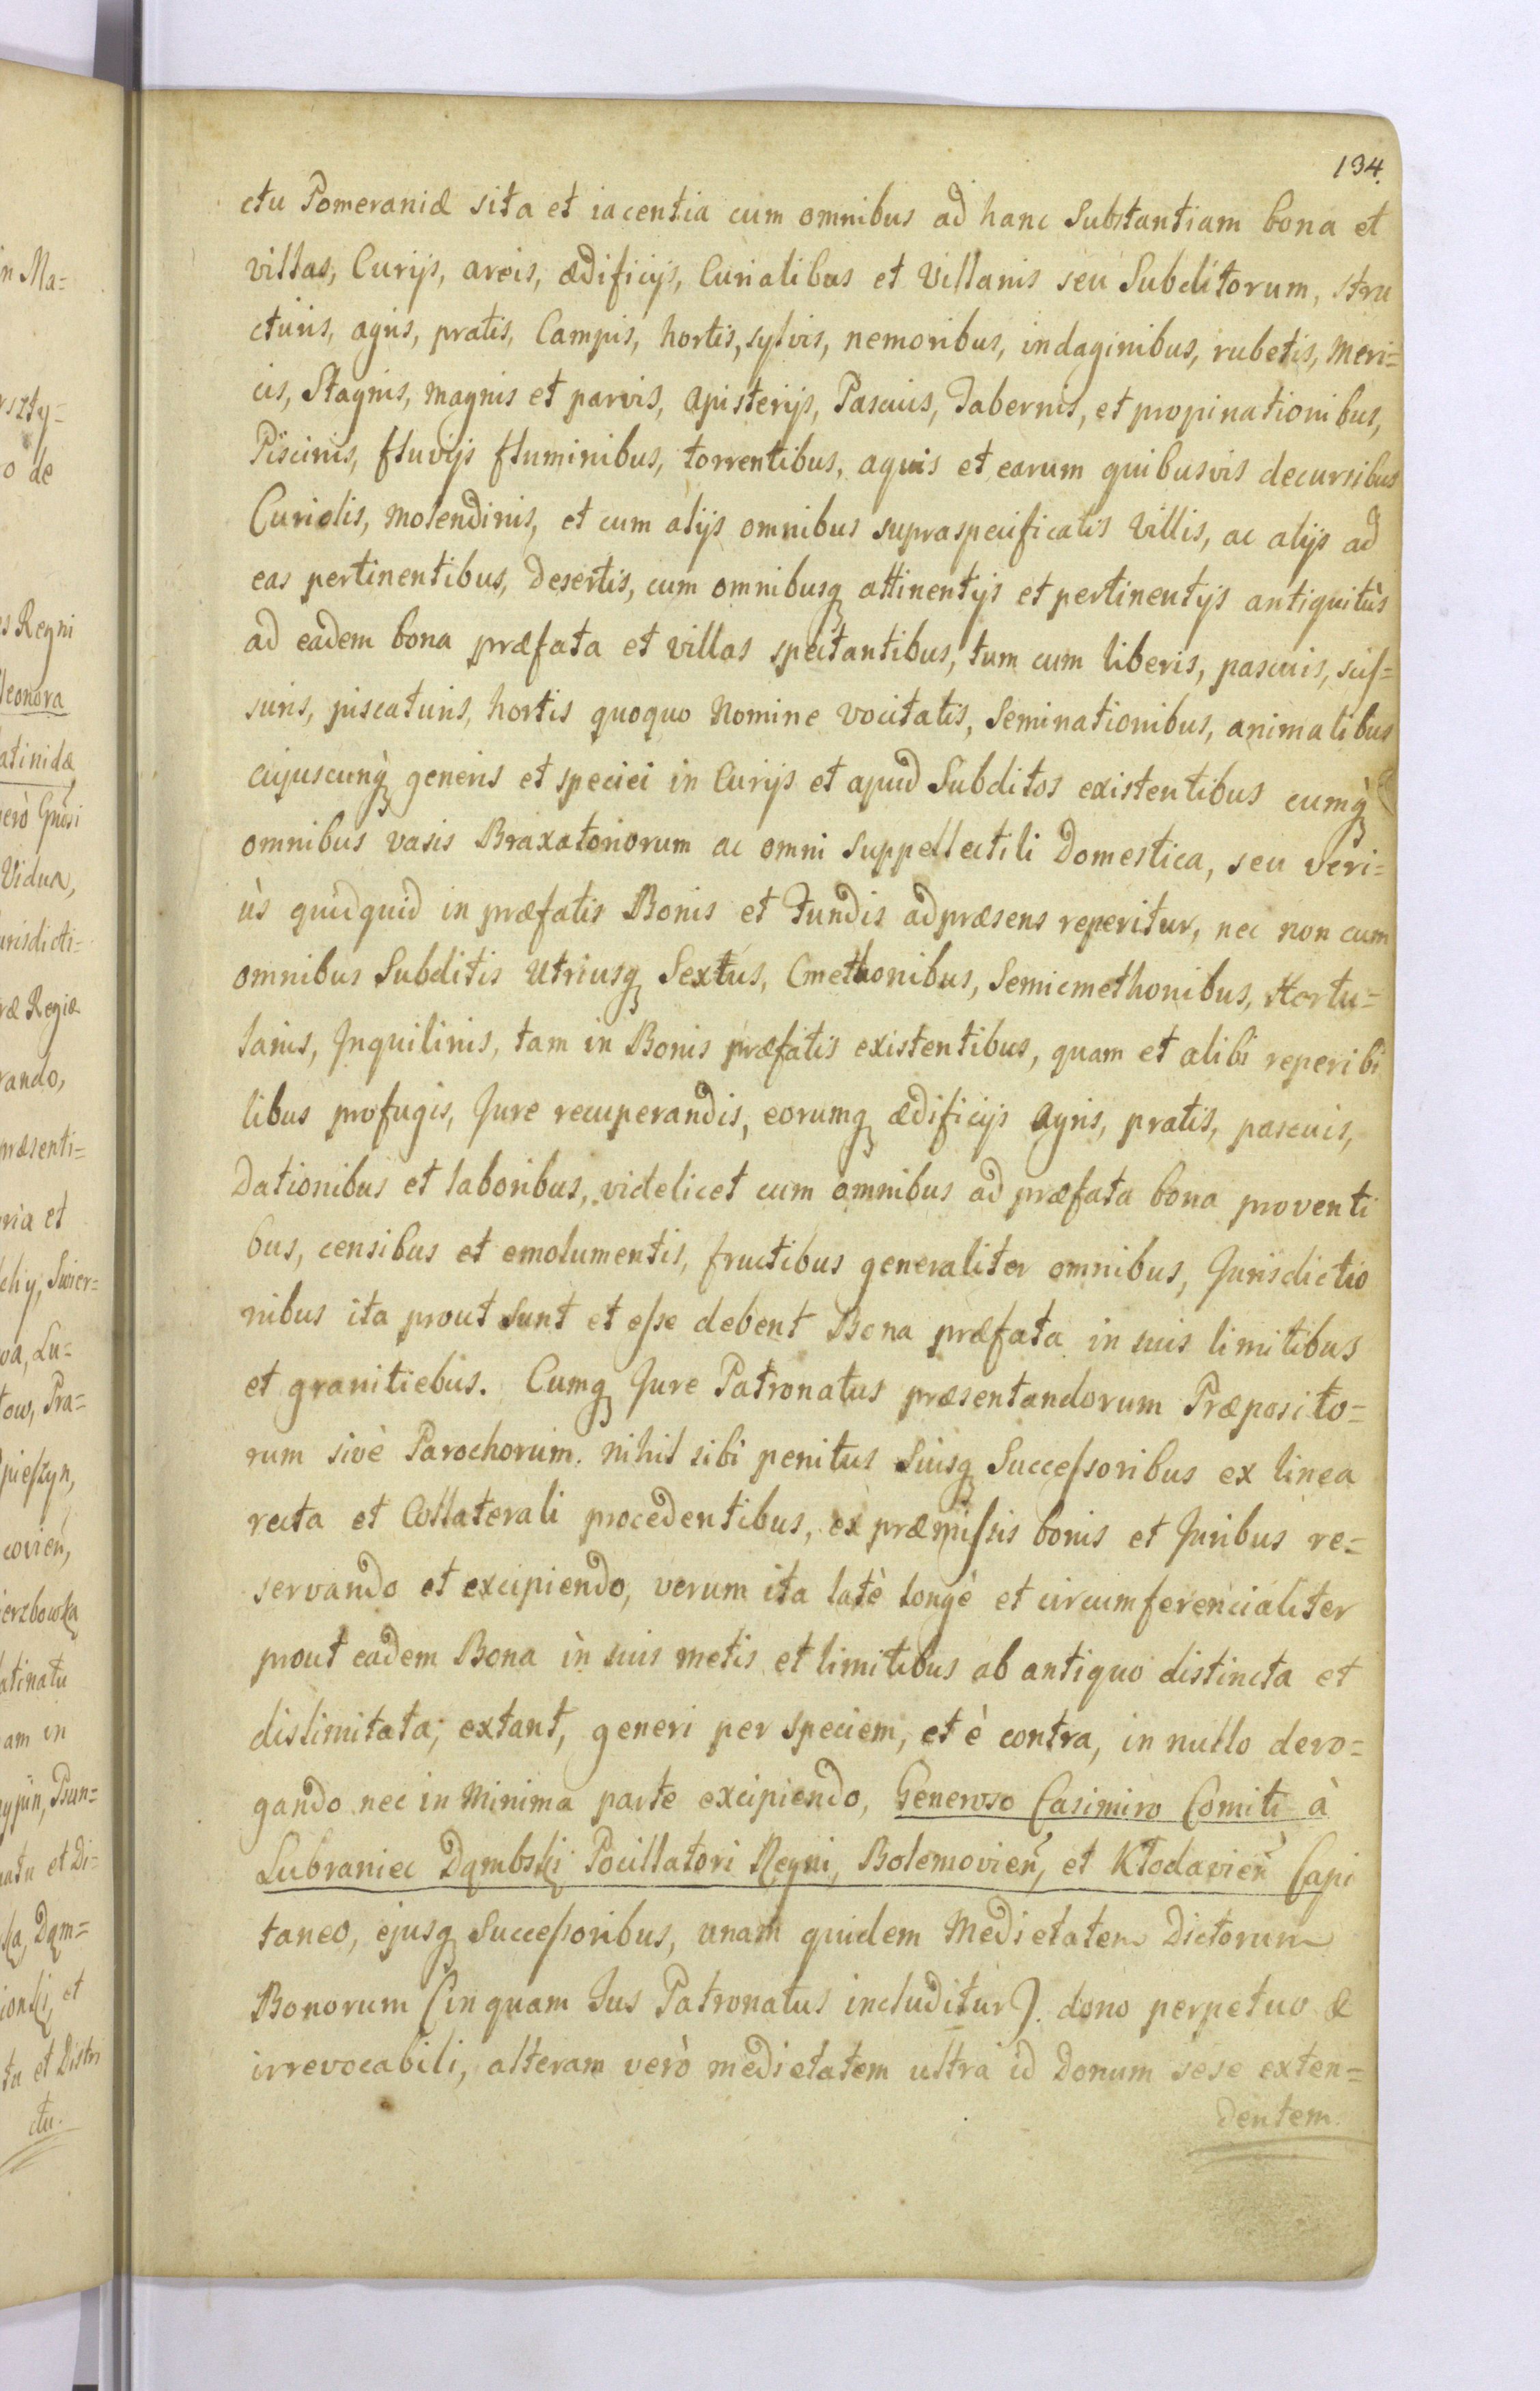 134.
ctu Pomeraniæ sita et iacentia cum omnibus ad hanc Substantiam bona et
villas, Curijs, areis, ædificijs, Curialibus et Villanis seu Subditorum, stru
cturis, agris, pratis, Campis, hortis, sylvis, nemoribus, indaginibus, rubetis, Meri=
cis, Stagnis, magnis et parvis, apisterijs, Pascuis, Tabernis, et propinationibus,
Piscinis, fluvijs fluminibus, torrentibus, aquis et earum quibusvis decursibus
Curiolis, Molendinis, et cum alijs omnibus supraspecificatis Villis, ac alijs ad
eas pertinentibus, Desertis, cum omnibusq attinentijs et pertinentijs antiquitùs
ad eadem bona præfata et villas spectantibus, tum cum liberis, pascuis, scis=
suris, piscaturis, hortis quoquo Nomine Vocitatis, Seminationibus, animalibus
cujuscunq generis et speciei in Curijs et apud Subditos existentibus cumq
omnibus vasis Braxatoriorum ac omni Suppellectili Domestica, seu veri=
ùs quidquid in præfatis Bonis et Fundis adpræsens reperitur, nec non cum
omnibus Subditis Utriusq Sextus, Cmethonibus, Semicmethonibus, Hortu=
lanis, Inquilinis, tam in Bonis præfatis existentibus, quam et alibi reperibi
libus profugis, Jure recuperandis, eorumq ædificijs Agris, pratis, pascuis,
Dationibus et laboribus, videlicet cum omnibus ad præfata bona proventi
bus, censibus et emolumentis, fructibus generaliter omnibus, Jurisdictio
nibus ita prout sunt et esse debent Bona præfata in suis limitibus
et granitiebus. Cumq Jure Patronatus præsentandorum Præposito=
rum sivè Parochorum. nihil sibi penitus Suisq Successoribus ex linea
recta et Collaterali procedentibus, ex præmissis bonis et Juribus re=
servando et excipiendo, verum ita latè longè et circumferencialiter
prout eadem Bona in suis metis et limitibus ab antiquo distincta et
dislimitata; extant, generi per speciem, et è contra, in nullo dero=
gando nec in Minima parte excipiendo, Generoso Casimiro Comiti à
Lubraniec Dąmbski Pocillatori Regni, Bolemovien, et Kłodavien Capi
taneo, ejusq Successoribus, unam quidem Medietatem Dictorum
Bonorum (in quam Jus Patronatus includitur). dono perpetuo &
irrevocabili, alteram verò medietatem ultra id Donum sese exten=
dentem.